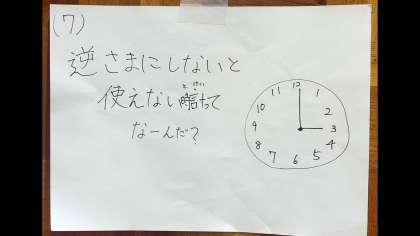 (7)
逆さまにしないと
とけい
使えない時計って
なーんだ？
12
11 1
10 2
9 3
8 4
7 5
6